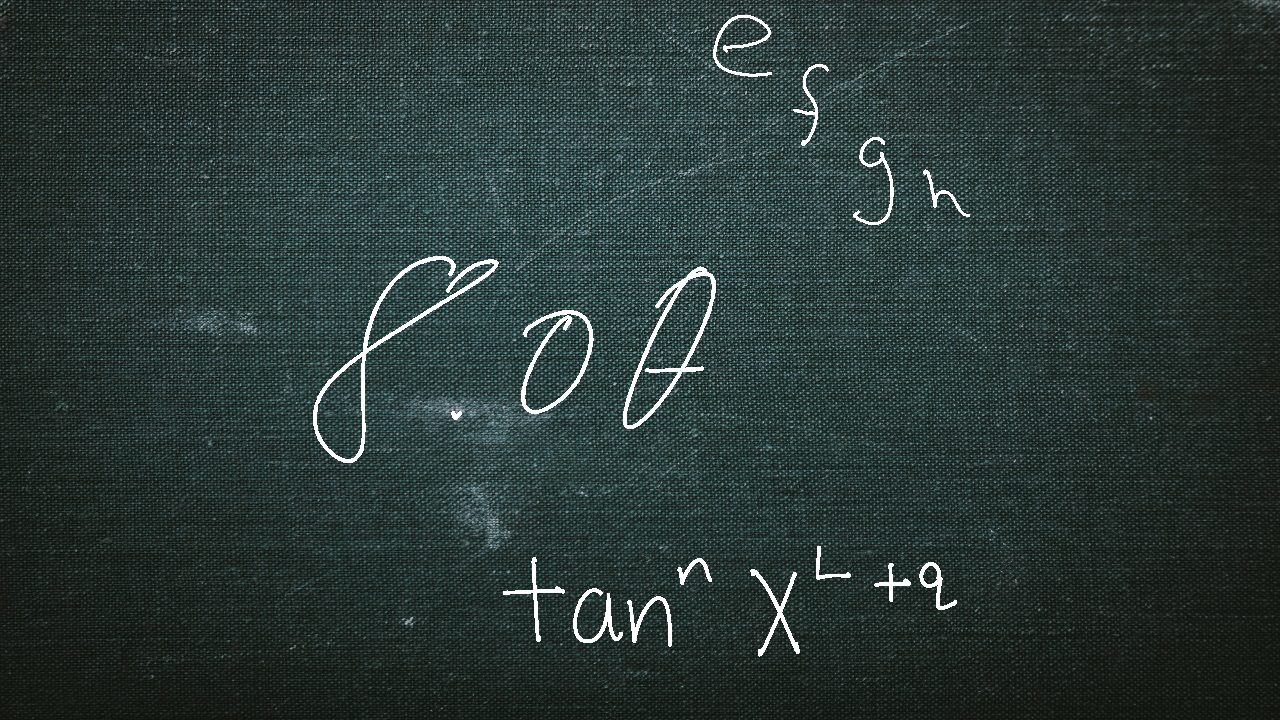 e f g h
8.0θ
tanⁿ x^L + q